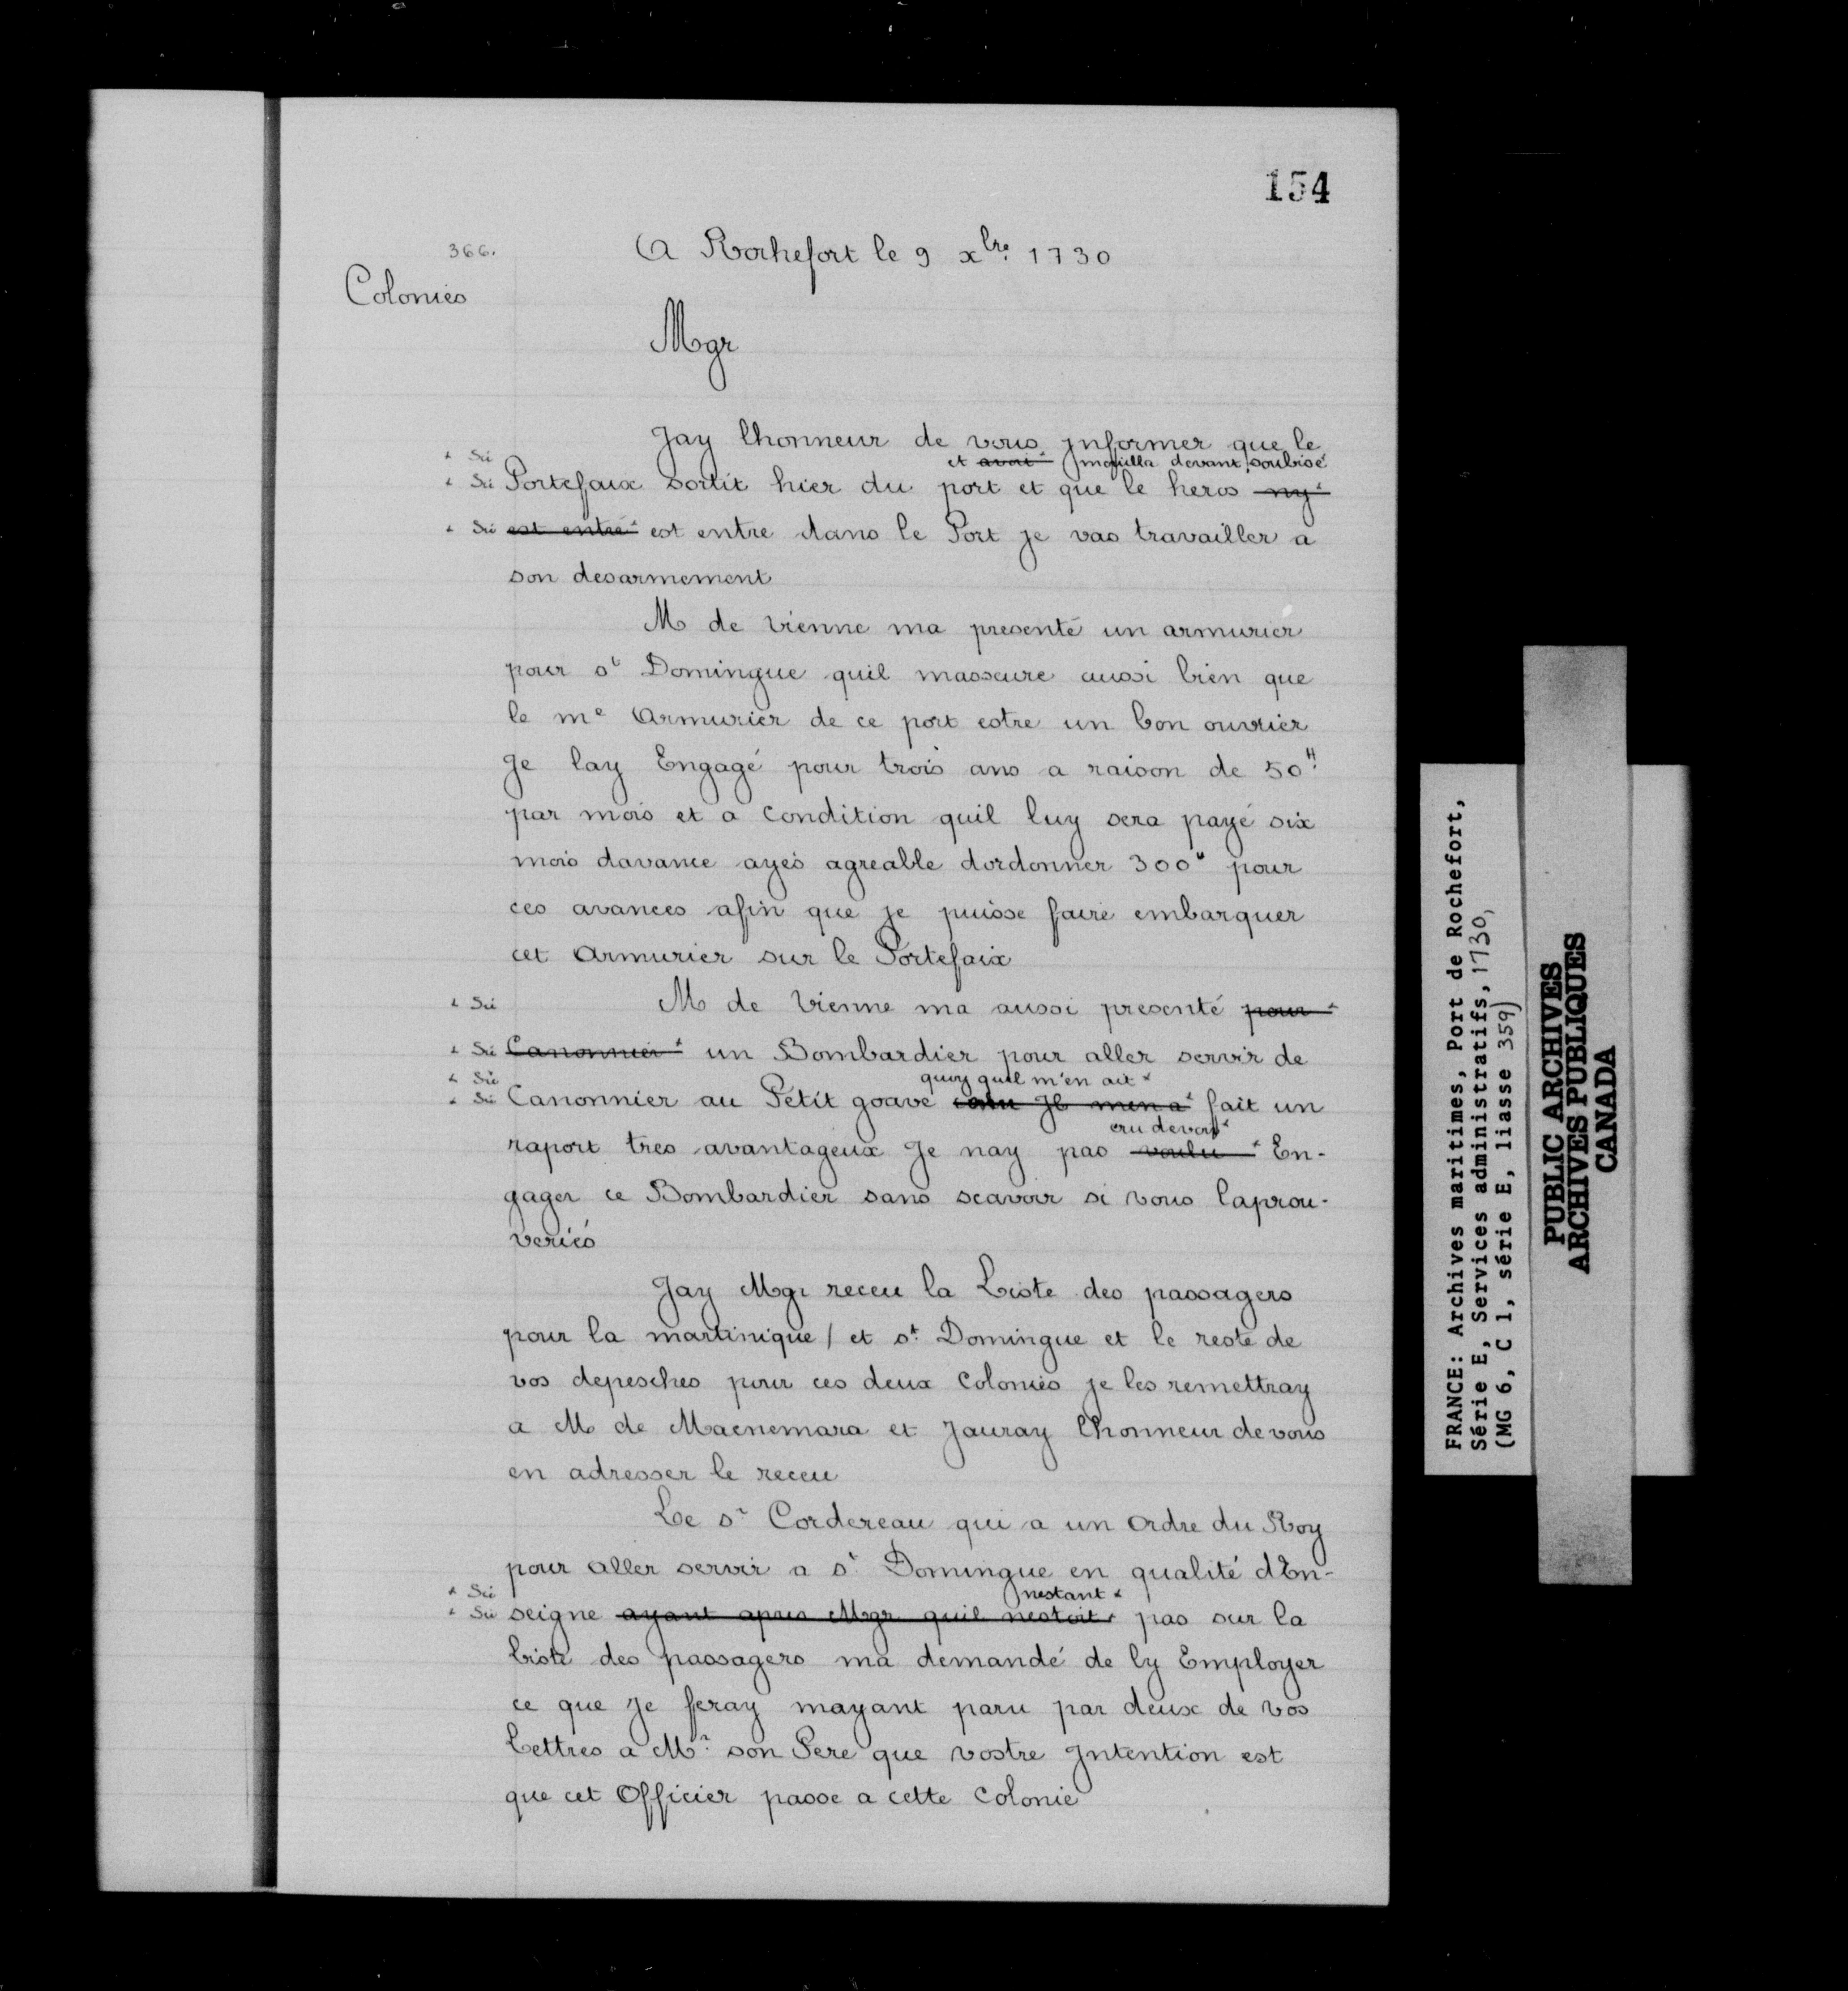 154
366.
A Rochefort le 9 xbre 1730
Colonies
Mgr
Jay lhonneur de vous jnformer que le
+ Sic
et avoit + mouilla devant soubise
+ Sic Portefaix sortit hier du port et que le heros ny +
+ Sic est entré + est entre dans le Port je vas travailler a
son desarmement
M de Vienne ma presenté un armurier
pour st Domingue quil masseure aussi bien que
le me Armurier de ce port estre un bon ouvrier
Je lay Engagé pour trois ans a raison de 50tt
par mois et a condition quil luy sera payé six
mois davance ayés agreable dordonner 300tt pour
ces avances afin que je puisse faire embarquer
cet Armurier sur le Portefaix
+ Sic M de Vienne ma aussi presenté pour +
+ Sic Canonnier + un Bombardier pour aller servir de
+ Sic quoy quil m'en ait +
+ Sic Canonnier au Petit goave Jl men a + fait un
cru devoir +
raport tres avantageux Je nay pas voulu + En-
gager ce Bombardier sans scavoir si vous laprou-
veriés
Jay Mgr receu la Liste des passagers
pour la martinique / et st Domingue et le reste de
vos depesches pour ces deux Colonies je les remettray
a M de Macnemara et Jauray lhonneur de vous
en adresser le receu
Le sr Cordereau qui a un ordre du Roy
pour aller servir a St Domingue en qualité dEn-
+ Sic nestant +
+ Sic seigne ayant apris Mgr quil nestoit + pas sur la
liste des passagers ma demandé de ly Employer
ce que Je feray mayant paru par deux de vos
Lettres a Mr son Pere que vostre Jntention est
que cet Officier passe a cette Colonie
FRANCE: Archives maritimes, Port de Rochefort,
Série E, Services administratifs, 1730,
(MG 6, C 1, série E, liasse 359)
PUBLIC ARCHIVES
ARCHIVES PUBLIQUES
CANADA